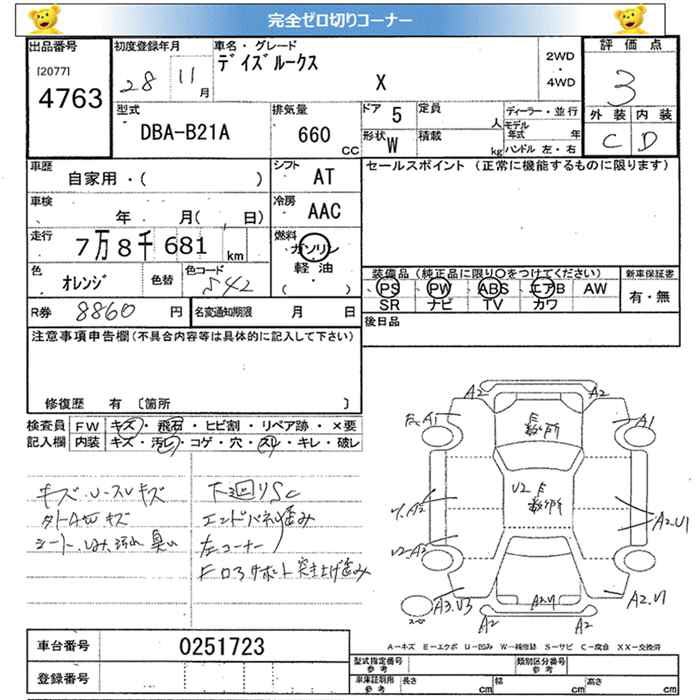 完全ゼロ切りコーナー
出品番号
[2077]
4763
初度登録年月
28 11 月
車名・グレード
デイズルークス
X
2WD
・
4WD
評価点
3
外装 内装
C D
型式
DBA-B21A
排気量
660 CC
ドア 5
形状 W
定員 人
積載 kg
ディーラー・並行
モデル年式 年
ハンドル 左・右
車歴
自家用・( )
シフト AT
車検
年 月( 日)
冷房 AAC
走行
7万8千681 km
燃料
ガソリン
軽油
( ・ )
色 オレンジ
色替
色コード 542
R券 8860 円
名変通知期限 月 日
セールスポイント (正常に機能するものに限ります)
装備品(純正品に限り○をつけてください)
PS PW ABS エアB AW
SR ナビ TV カワ
新車保証書
有・無
後日品
注意事項申告欄(不具合内容等は具体的に記入して下さい)
修復歴 有 〔箇所 〕
検査員記入欄
FW キズ・飛石・ヒビ割・リペア跡・×要
内装 キズ・汚レ・コゲ・穴・スレ・キレ・破レ
キズ・U・スレキズ
シート、しみ、汚れ 臭い
下廻りSC
エンドパネル歪み
左コーナー
Fロアサポート突き上げ歪み
A2 A2
F.A1 A1
E 数ヶ所
U2 E 数ヶ所
A2.U1
U2.A2
A3.U3
A2.U1
A2.U1
A2 A2
A-キズ E-エクボ U-凹み W-補修跡 S-サビ C-腐食 XX-交換済
車台番号 0251723
登録番号
型式指定番号 参考
類別区分番号 参考
車庫証明用 参考
長さ cm 幅 cm 高さ cm